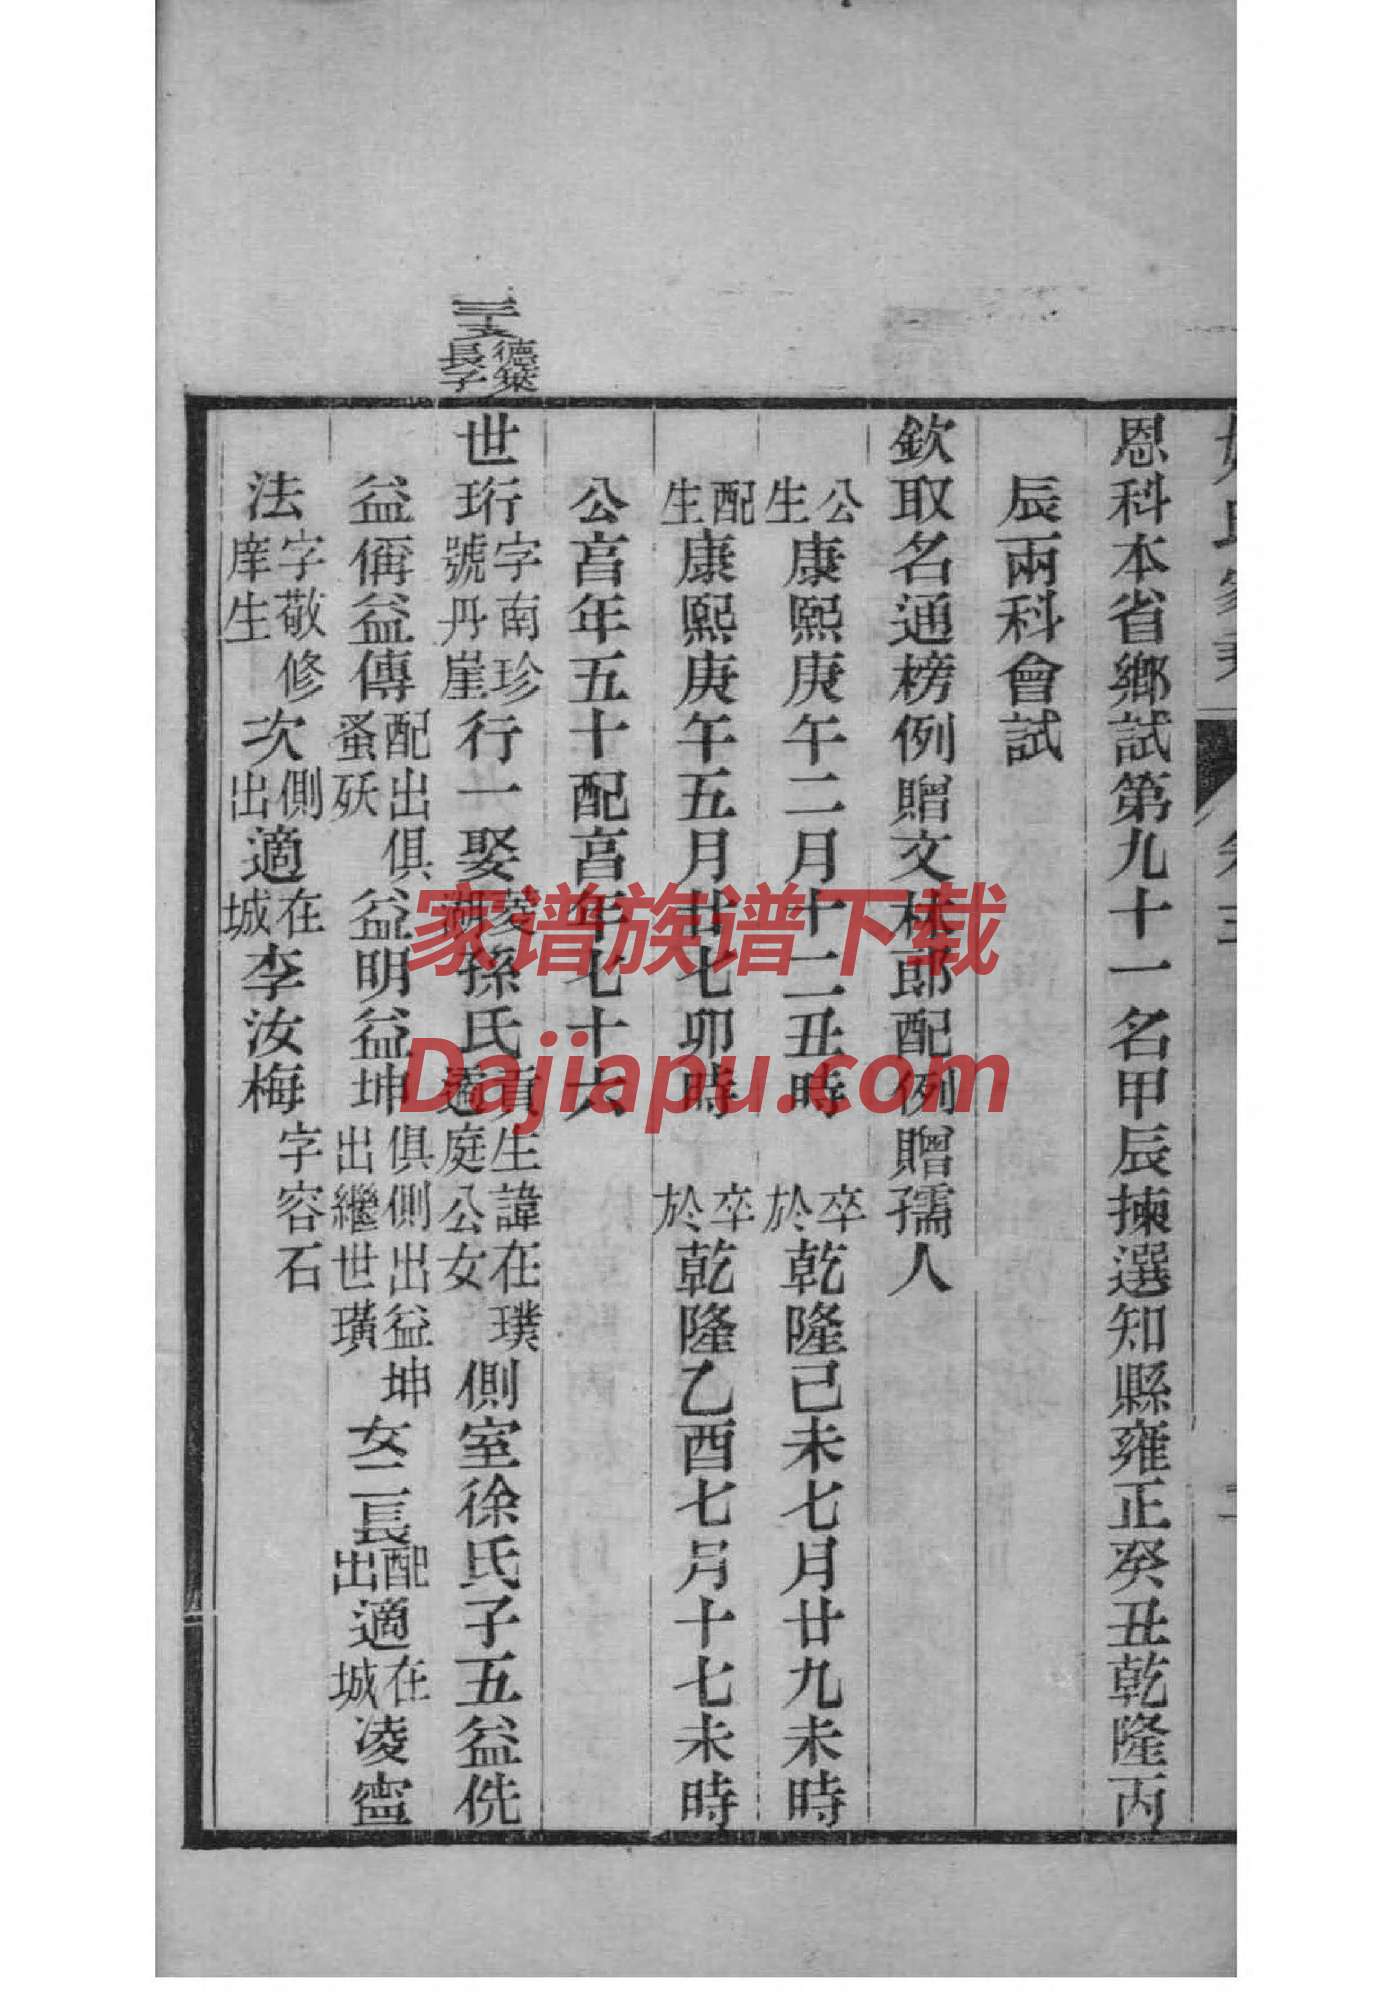 恩科本省鄉試第九十一名甲辰揀選知縣雍正癸丑乾隆丙
辰兩科會試
欽取名通榜例贈文林郎配例贈孺人
公生康熙庚午二月十二丑時 卒於乾隆己未七月廿九未時
配生康熙庚午五月廿七卯時 卒於乾隆乙酉七月十七未時
公亯年五十配亯年七十六
德榘長子
世珩字南珍號丹崖行一娶菱湖孫氏貢生諱在璞庭公女側室徐氏子五益侁
益偁益傳配出俱蚤殀益明益坤俱側出益坤出繼世璜女二長配出適在城凌寍
法字敬修庠生次側出適在城李汝梅字容石
家谱族谱下载
Dajiapu.com